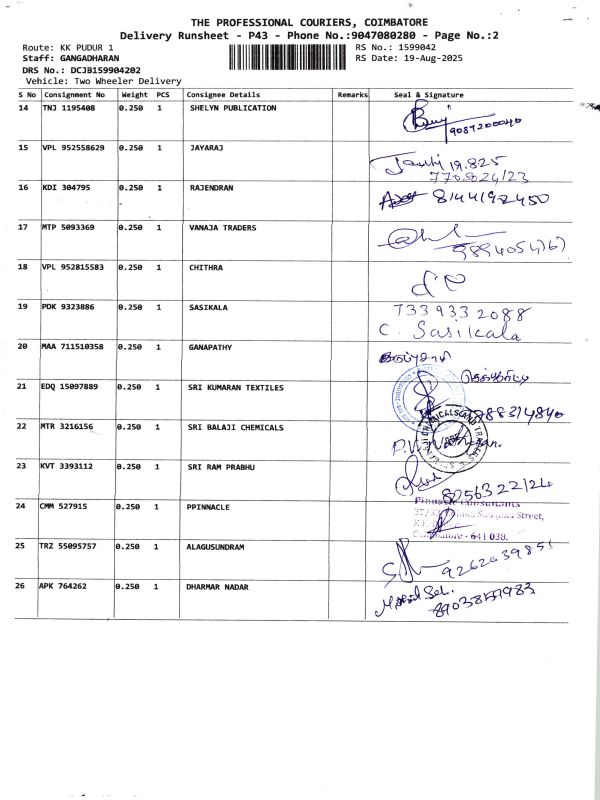 THE PROFESSIONAL COURIERS, COIMBATORE
Delivery Runsheet - P43 - Phone No.:9047080280 - Page No.:2
Route: KK PUDUR 1 RS No.: 1599042
Staff: GANGADHARAN RS Date: 19-Aug-2025
DRS No.: DCJB159904202
Vehicle: Two Wheeler Delivery
S No Consignment No Weight PCS Consignee Details Remarks Seal & Signature
14 TNJ 1195408 0.250 1 SHELYN PUBLICATION
9087200040
15 VPL 952558629 0.250 1 JAYARAJ
19.825
7708024123
16 KDI 304795 0.250 1 RAJENDRAN 8144192450
17 MTP 5093369 0.250 1 VANAJA TRADERS
18 VPL 952815583 0.250 1 CHITHRA
19 PDK 9323886 0.250 1 SASIKALA 7339332088
C. Sasikala
20 MAA 711510358 0.250 1 GANAPATHY
21 EDQ 15097889 0.250 1 SRI KUMARAN TEXTILES
22 MTR 3216156 0.250 1 SRI BALAJI CHEMICALS
23 KVT 3393112 0.250 1 SRI RAM PRABHU
8056322124
24 CMM 527915 0.250 1 PPINNACLE Pinnacle Consultants
Street,
Coimbatore - 641 038.
25 TRZ 55095757 0.250 1 ALAGUSUNDRAM
26 APK 764262 0.250 1 DHARMAR NADAR